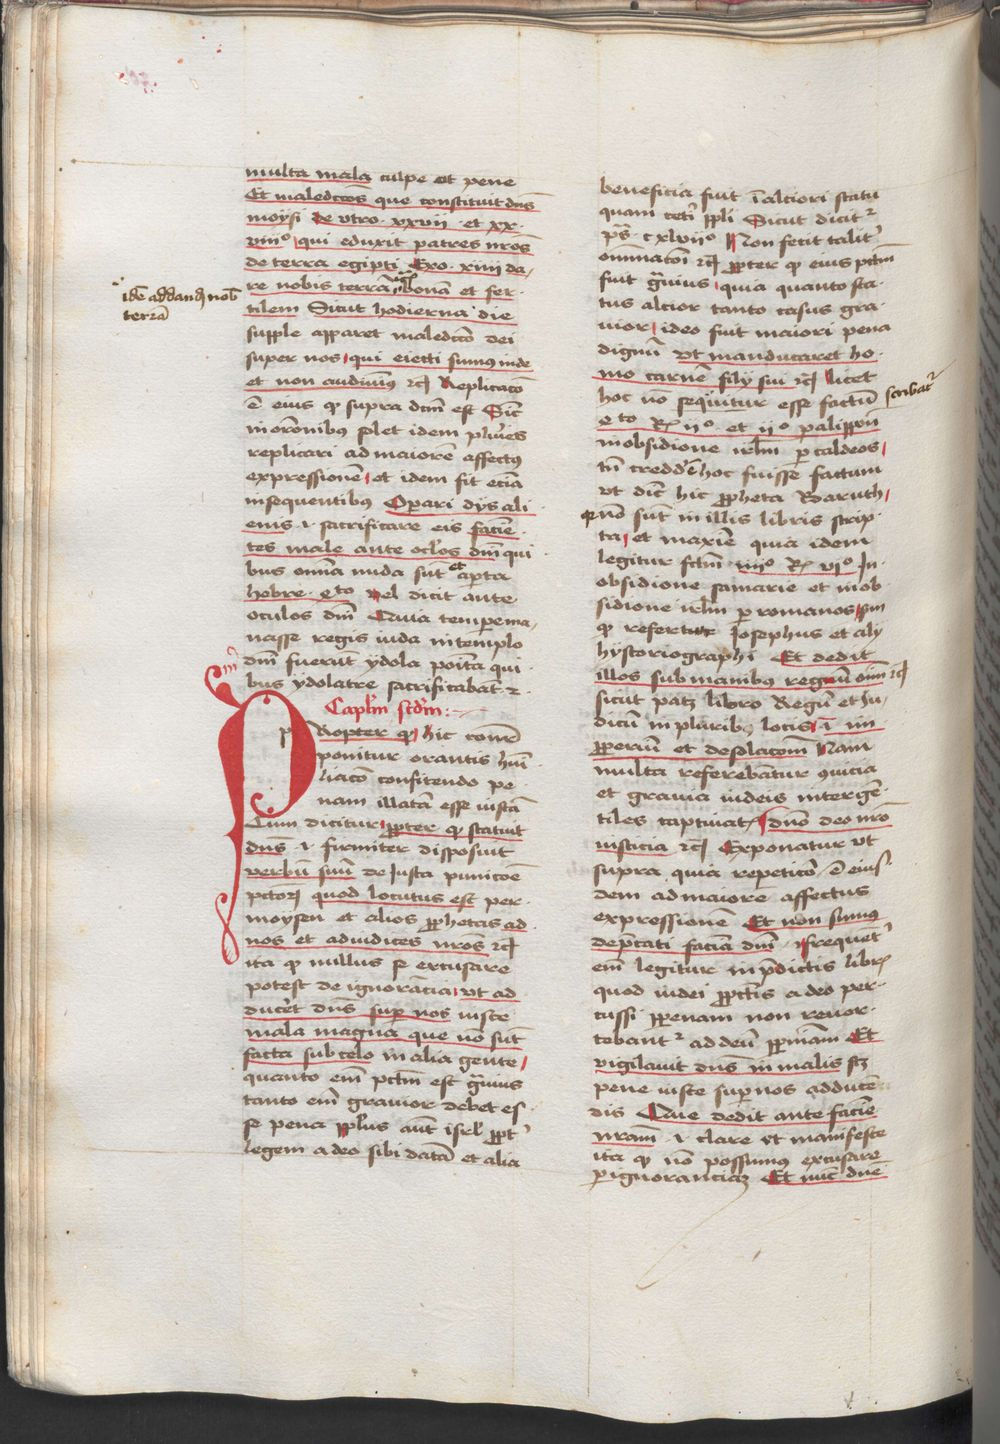 multa mala culpe et pene
Et maledictōes que constituit dn̄s
moysi De utro · xxvii · et xx·
viiiº qui eduxit patres nr̄os
de terra egipti Exo · xiiii da/
re nobis terrā bonam et fer·
tilem Sicut hodierna die
supple apparet maledictō dei
super nos qui eiecti sumus inde
et non audiuimus ꝛc̄ Replicatō
ē eius qꝫ supra dictm̄ est Sic̄
in orōnibus solet idem plur̄ies
replicari ad maiorē affectus
expressionē et idem fit etiā
in sequentibus Operari dijs ali
enis ⁊ sacrificare eis facien·
tes male ante ocl'os dn̄i qui
bus omnia nuda sūt et aperta
hebre · 4to Vel dicit ante
oculos dn̄i Quia tempe ma/
nasse regis iuda in templo
dn̄i fuerūt ydola posita qui·
bus ydolatre sacrificabāt ꝛ·
Capl'm scd'm :
PRopter qꝫ hic conr̄
ponitur orantis hūi
liacō confitendo pe·
nam illatā esse iustā
Cum dicitur ꝓpter qꝫ statuit
dn̄s ⁊ firmiter disposuit
verbū suū de iusta punicōe
pctōꝝ quod locutus est per·
moysen et alios ꝓphetas ad
nos et ad iudices nr̄os ꝛc̄
ita qꝫ nullus se excusare
potest de ignorancia ut ad
ducēt dn̄s sup nos iuste
mala magna que nō sūt
facta sub celo in alia gente
quanto em̄ pctm̄ est gūius
tanto em̄ grauior debet es·
se pena ppl'us aut̄ isrl' ꝓpt'
legem a deo sibi datā et alia
idē ad dand nob̄
terrā
beneficia fuit ī altiori statu
quam ceti ppl'i Sicut dicitꝛ
ps̄ · cxlviiº Non fecit talit'
omī nacōi ꝛc̄ ꝓpter qꝫ eius pctm̄
fuit gūius quia quanto sta·
tus altior tanto casus gra
uior ideo fuit maiori pena
dignū Vt manducaret ho·
mo carnē filij sui ꝛc̄ licet
hoc nō sequitur esse factū
4to Rꝫ iiº · et iiº palippoū
in obsidione irl'm p caldeos
tn̄ credd'ē hoc fuisse factum
ut dic̄ hic ꝓpheta Baruth
qꝛ nō sūt in illis libris scrip·
ta et maxīe quia idem
legitur fctm̄ iiiiº Rꝫ viº In·
obsidione samarie et in ob·
sidione irl'm p romanos sm̄
qꝫ refertur Josephus et alij
hystoriographi Et dedit
illos sub manibus regum oīm ꝛc̄
sicut patꝫ libro Regū et Iu·
dicū in pluribꝫ locis ī im
ꝓperiū et desolacōem Nam
multa referebātur ꝯuicia
et grauia iudeis inter gēn
tiles captiuatꝭ dn̄o deo nr̄o
iusticia ꝛc̄ Exponatur ut
supra quia repeticō ē eius
dem ad maiorē affectus
expressionē Et non sumus
dep̄cati faciā dn̄i frequēt'
em̄ legitur in p̄dictis libr̄
quod iudei ꝓpct̄is a deo per·
cussi ꝑ penam non reuer·
tebantꝛ ad deū ꝑ pn̄iam Et
vigilauit dn̄s in malis sꝫ
pene iuste super nos adducē
dis Que dedit ante faciē
nr̄am ⁊ clare et manifeste
ita qꝫ nō possumus excusare
ꝑ ignoranciaꝫ Et nūc dn̄e
scribat'